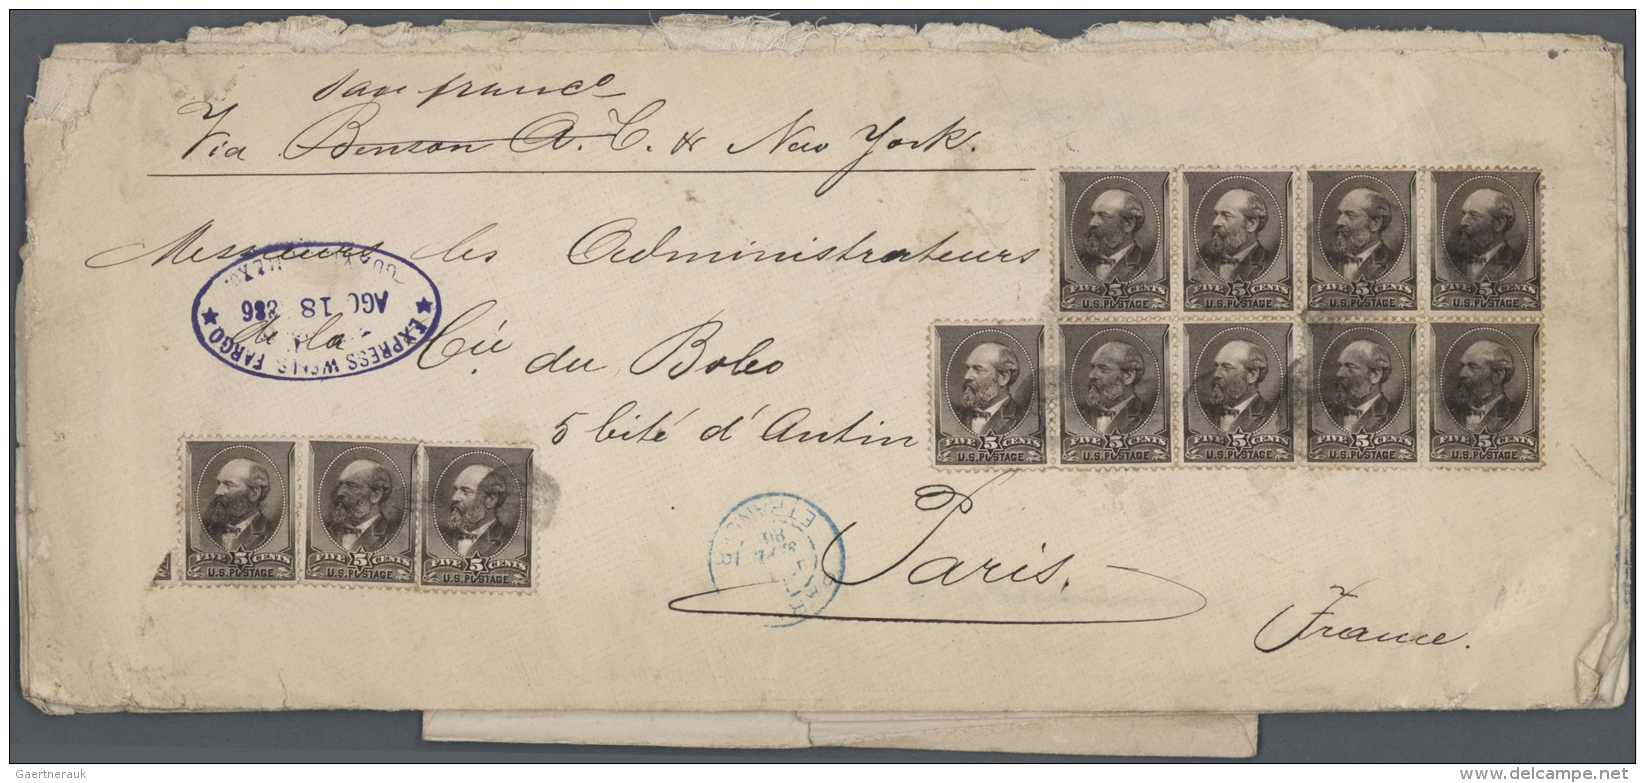 San franco
Via Benson A. C. & New York.
Messieurs les Administrateurs
de la Cie du Boleo
5 Cité d'Antin
Paris.
France.
EXPRESS WELLS FARGO
AGO 18 886
GUAY MEXO.
ETRANG
FIVE 5 CENTS FIVE 5 CENTS FIVE 5 CENTS FIVE 5 CENTS
U.S. POSTAGE U.S. POSTAGE U.S. POSTAGE U.S. POSTAGE
FIVE 5 CENTS FIVE 5 CENTS FIVE 5 CENTS FIVE 5 CENTS FIVE 5 CENTS
U.S. POSTAGE U.S. POSTAGE U.S. POSTAGE U.S. POSTAGE U.S. POSTAGE
FIVE 5 CENTS FIVE 5 CENTS FIVE 5 CENTS
U.S. POSTAGE U.S. POSTAGE U.S. POSTAGE
Gaertnerauk
delcampe.net